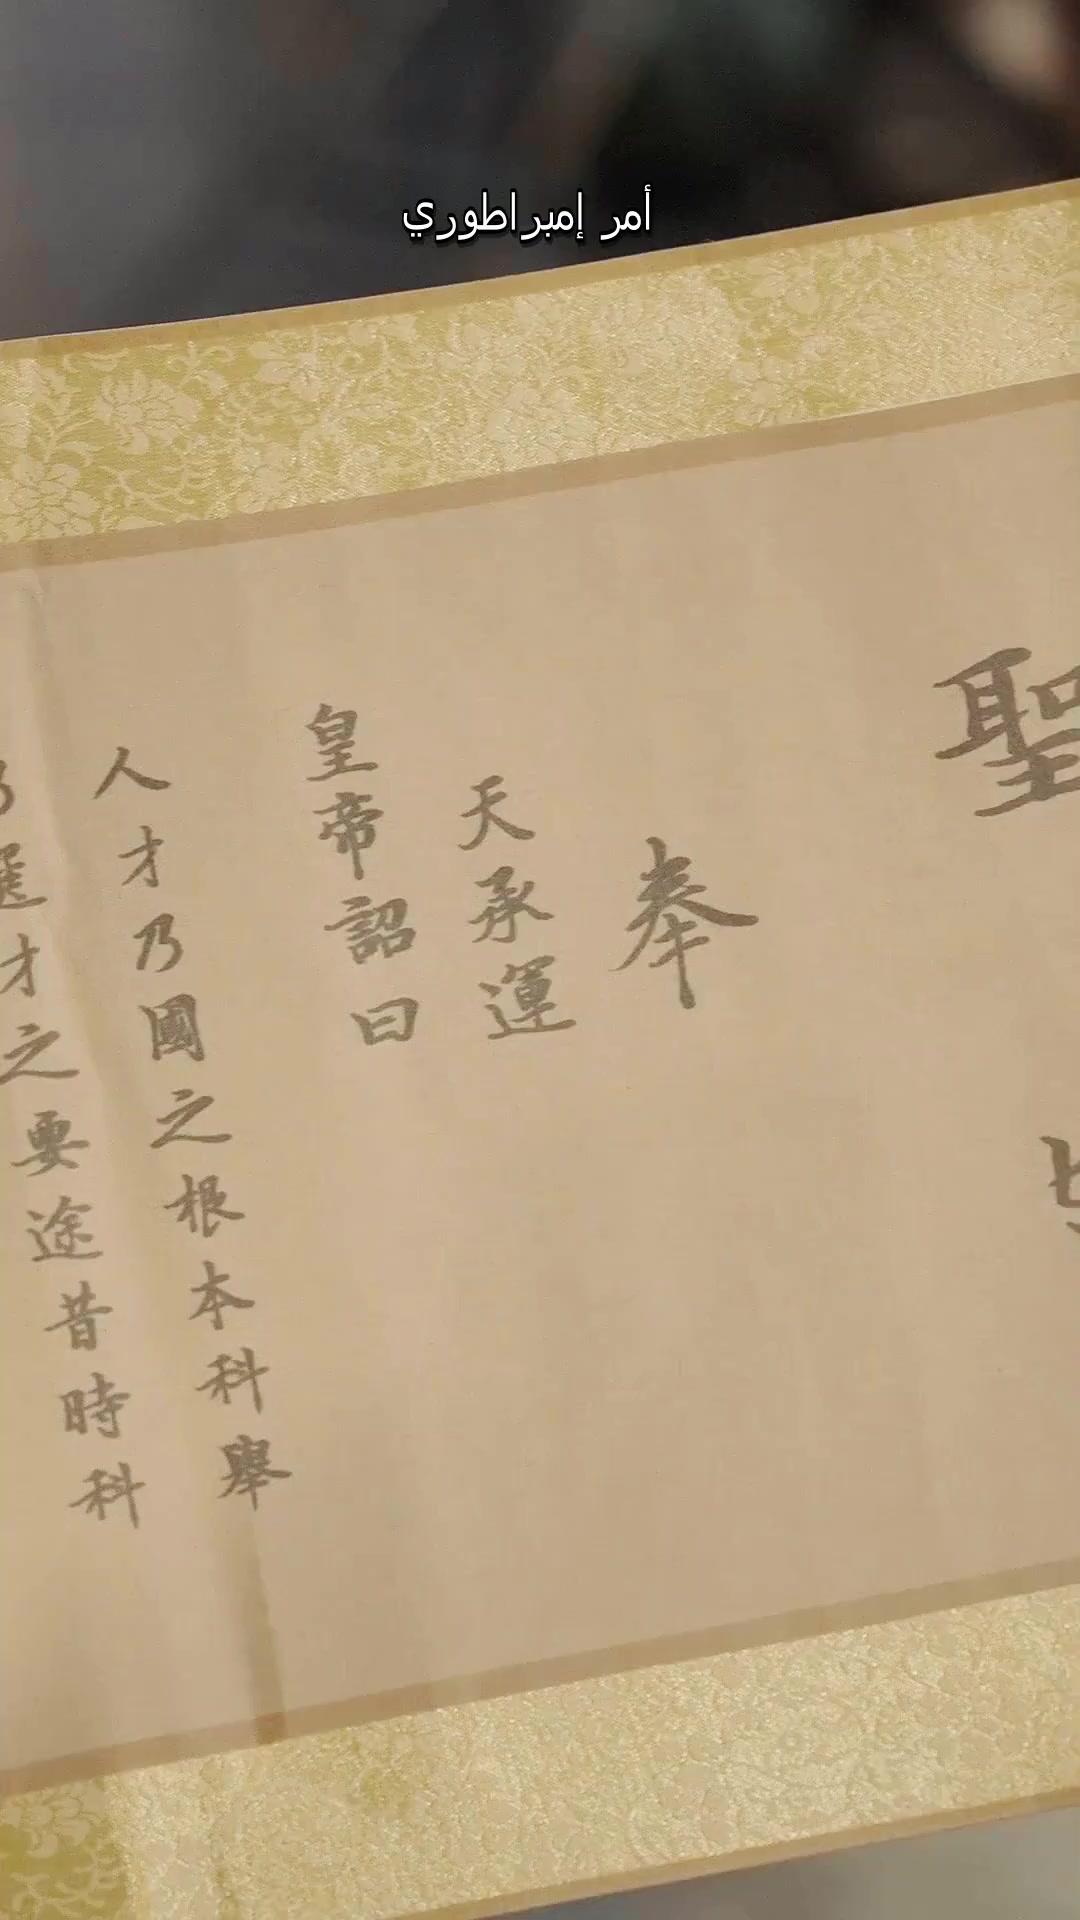 أمر إمبراطوري
聖
奉
天承運
皇帝詔曰
人才乃國之根本科舉
乃選才之要途昔時科